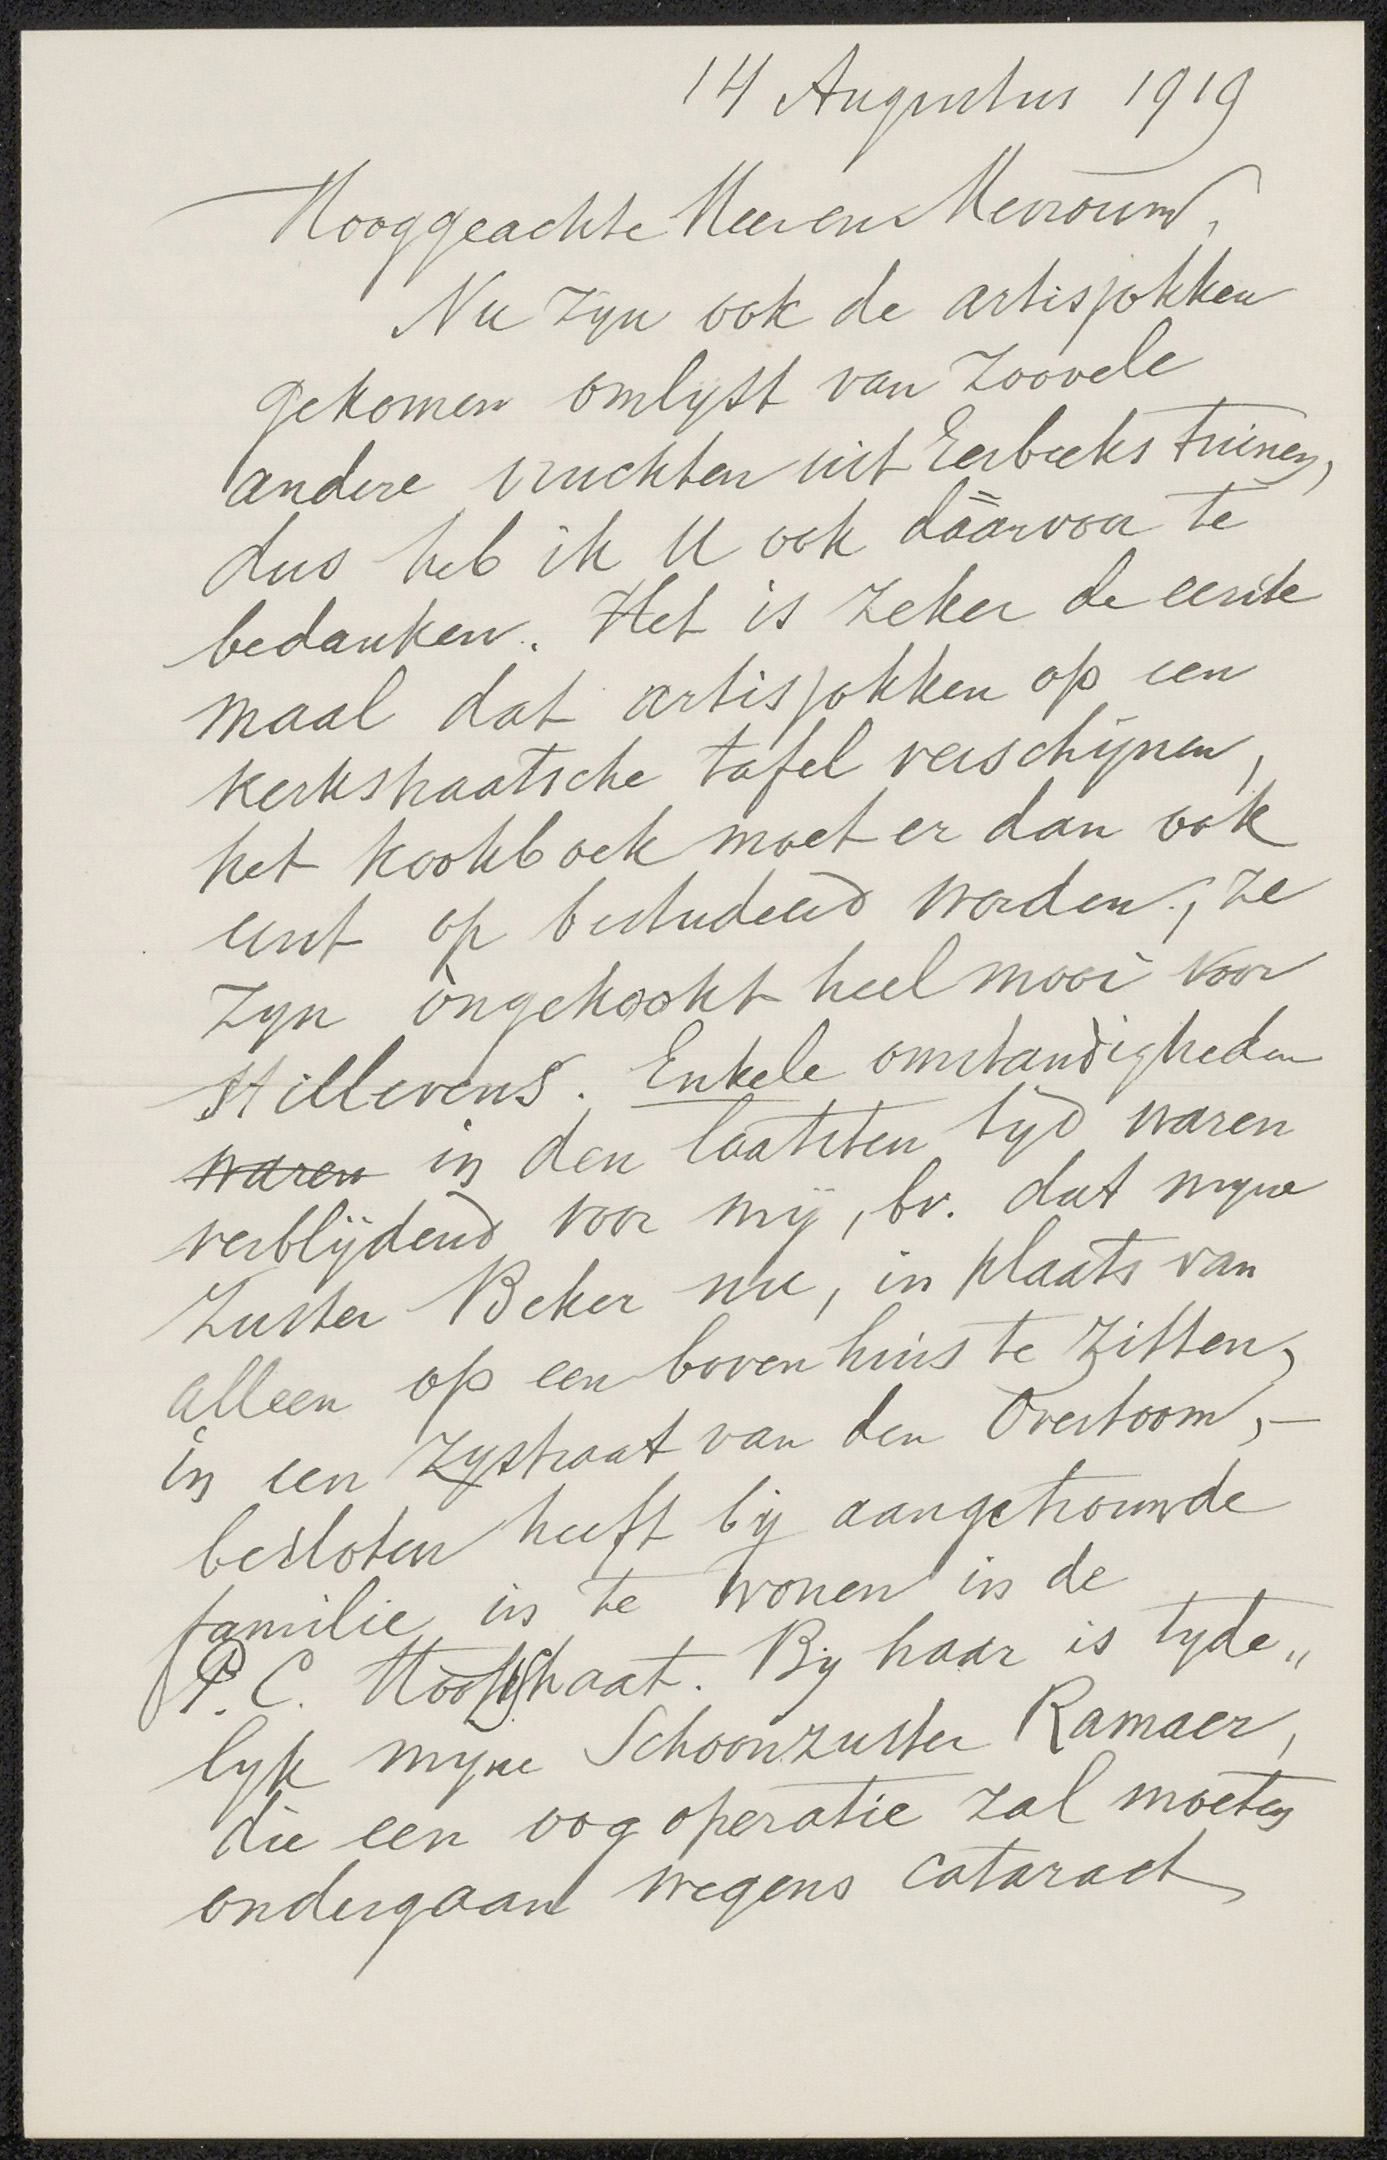 14 Augustus 1919
Hooggeachte Heer en Mevrouw,
Nu zyn ook de artisjokken
gekomen omlyst van zoovele
andere vruchten uit Eerbeeks tuinen,
dus heb ik U ook dáárvoor te
bedanken. Het is zeker de eerste
maal dat artisjokken op een
kerkstraatsche tafel verschijnen,
het kookboek moet er dan ook
eerst op bestudeerd worden; ze
zyn òngekookt heel mooi voor
stillevens. Enkele omstandigheden
waren in den laatsten tijd waren
verblijdend voor mij, bv. dat myne
Zuster Beker nu, in plaats van
alleen op een bovenhuis te zitten,
in een zystraat van den Overtoom, –
besloten heeft bij aangetrouwde
familie in te wonen in de
P. C. Hooftstraat. By haar is tyde„
lyk myne Schoonzuster Ramaer,
die een oogoperatie zal moeten
ondergaan wegens cataract